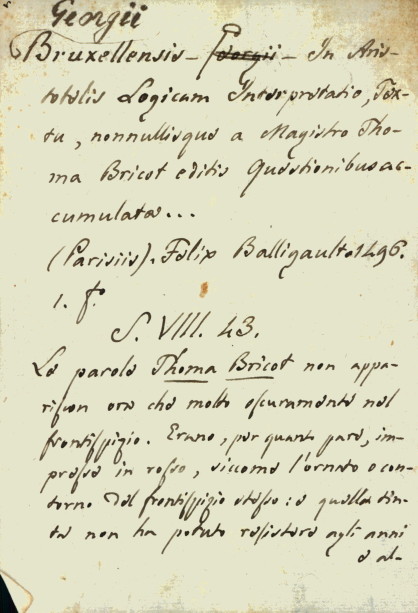 Georgii
Bruxellensis - Georgii - In Aris-
totelis Logicam Interpretatio, Tex-
tu, nonnullisque a Magistro Tho-
ma Bricot editis Quæstionibus ac-
cumulata...
(Parisiis). Felix Balligault. 1496.
1. fo.
S. VIII. 43.
Le parole Thoma Bricot non appa-
riscon ora che molto oscuramente nel
frontispizio. Erano, per quanto pare, im-
presse in rosso, siccome l'ornato o con-
torno del frontispizio stesso: e quella tin-
ta non ha potuto resistere agli anni
e al-